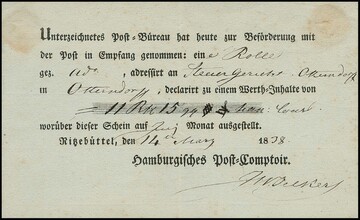 Unterzeichnetes Post-Büreau hat heute zur Beförderung mit
der Post in Empfang genommen: ein e Rolle
gez. Adr. , adressirt an Steuer Gericht Otterndorf
in Otterndorf , declarirt zu einem Werth-Inhalte von
11 15
worüber dieser Schein auf Monat ausgestellt.
Ritzebüttel, den 14 März 1838.
Hamburgisches Post-Comptoir.